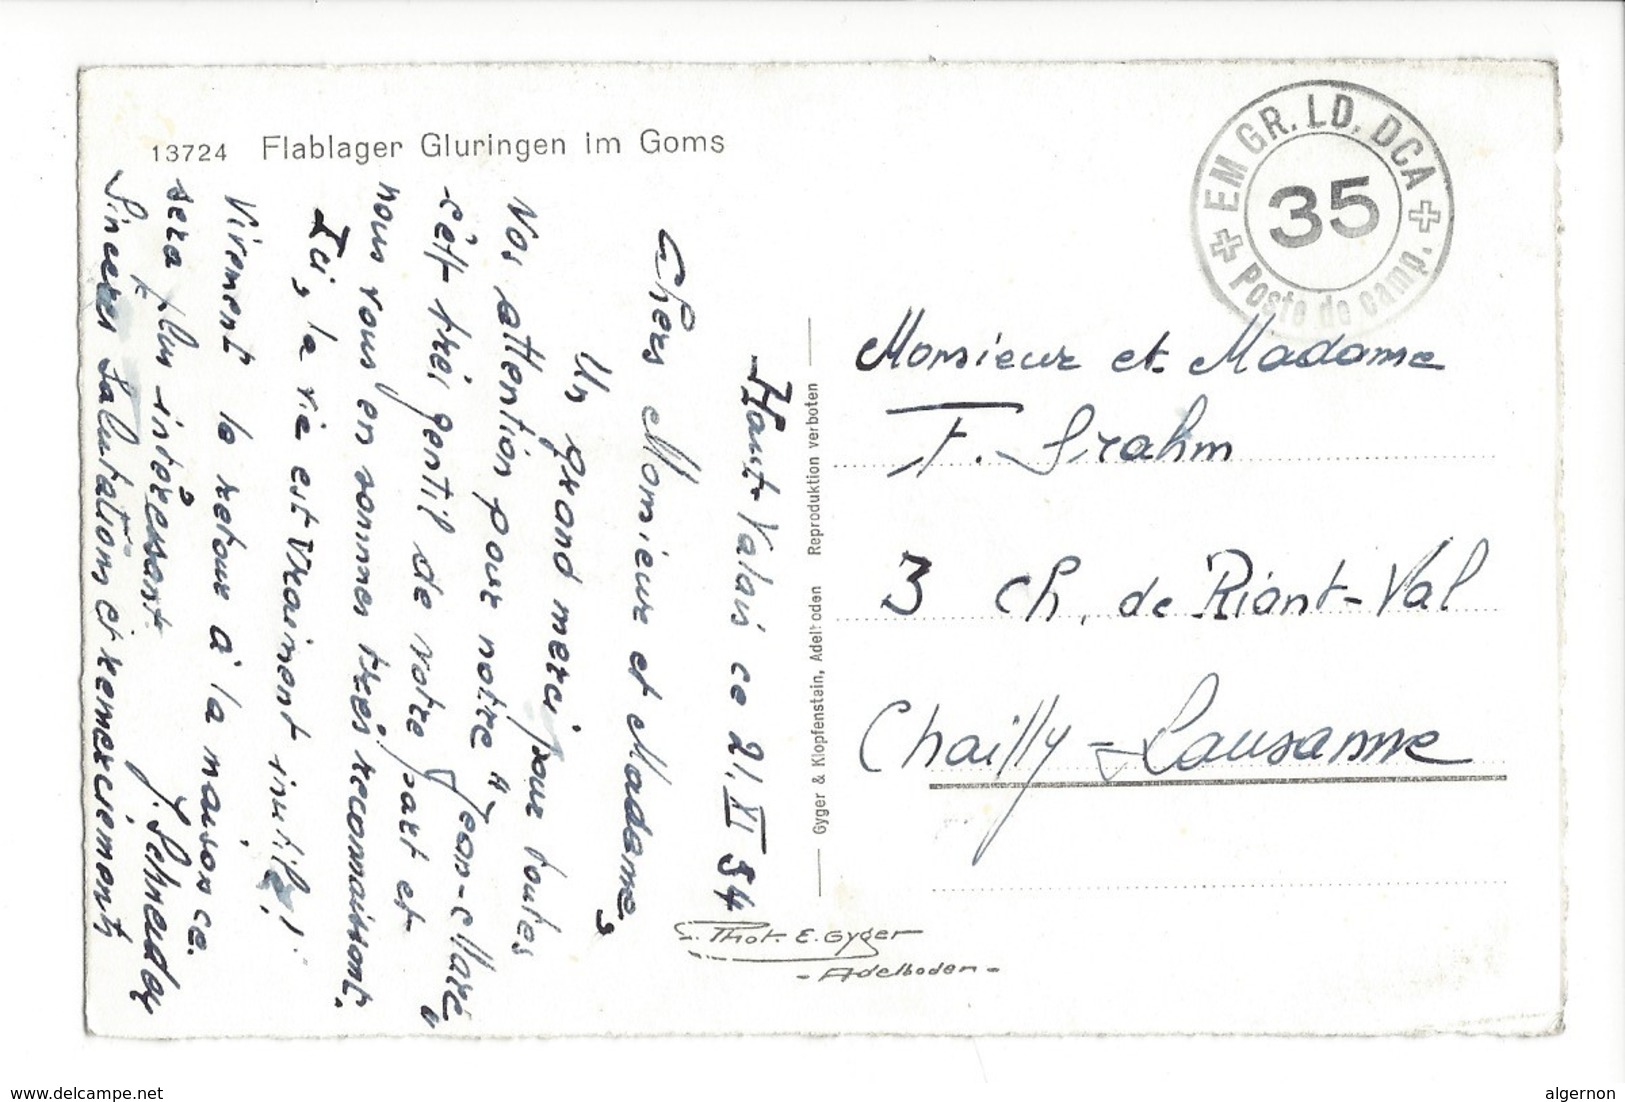 13724 Flablager Gluringen im Goms
EM GR. LD. DCA
35
Poste de camp.
Haut-Valais ce 21.VI 54
Chers Monsieur et Madame,
Un grand merci pour toutes
Vos attention pour notre "Jean-Marc"
c'ètt très gentil de votre part et
nous vous en sommes très reconnaissont.
Ici, la vie est vraiment inutile!
Vivement le retour à la maison ce
sera plus intéressant.
Sincères Salutations et remerciements
J. Schneider
Monsieur et Madame
F. Grahm
3 ch. de Riant-Val
Chailly - Lausanne
Gyger & Klopfenstein, Adelboden Reproduktion verboten
Phot. E. Gyger
- Adelboden -
www.delcampe.net
algernon